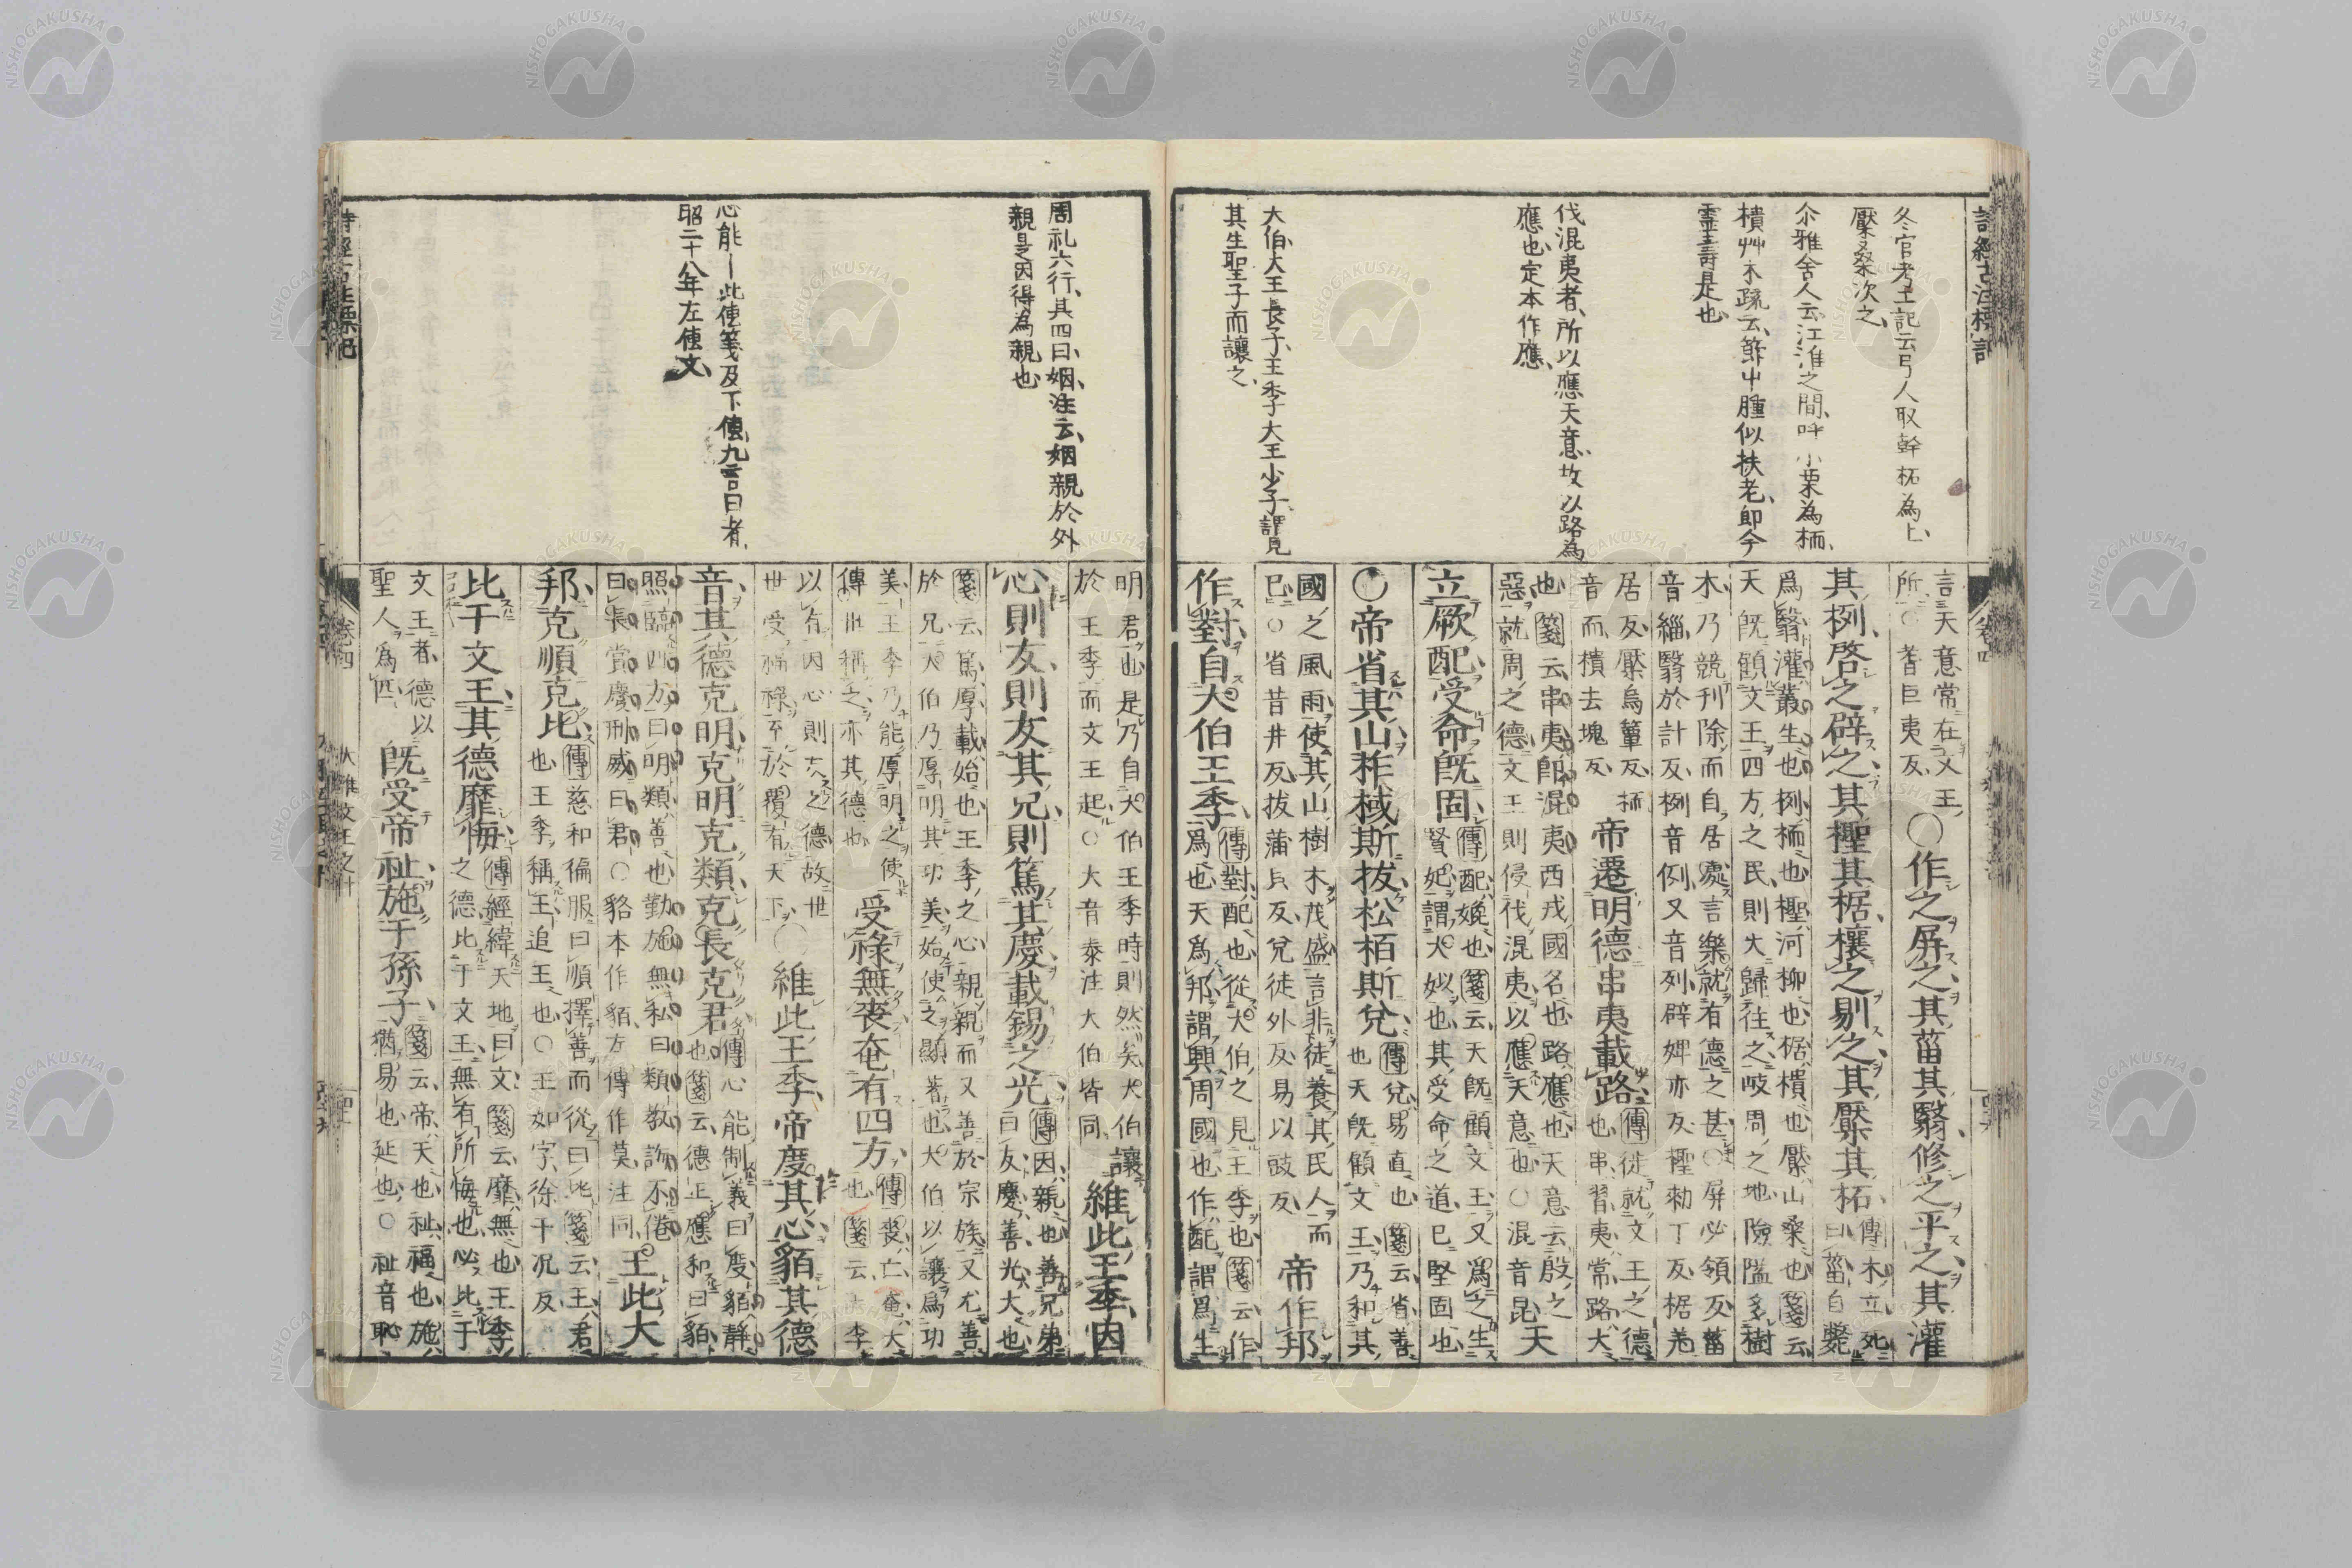 冬官考工記云弓人取幹柘為上
檿桑次之
尒雅舍人云江淮之間呼小栗為栭
樻艸木疏云節中腫似扶老即今
靈壽是也
伐混夷者所以應天意故以路為
應也定本作應
大伯大王長子王季大王少子謂見
其生聖子而讓之
言天意常在文王
所〇耆巨夷反
〇作之屏之其菑其翳修之平之其灌
其栵啓之辟之其檉其椐攘之剔之其檿其柘
傳木立死
曰菑自斃
爲翳灌叢生也栵栭也檉河柳也椐樻也檿山桑也箋云
天既顧文王四方之民則大歸往之岐周之地險隘多樹
木乃競刊除而自居處言樂就有德之甚〇屏必領反菑
音緇翳於計反栵音例又音列辟婢亦反檉勑丁反椐羌
居反檿烏簟反栭
音而樻去塊反
帝遷明德串夷載路
傳徙就文王之德
也串習夷常路大
也箋云串夷卽混夷西戎國名也路應也天意云殷之
惡就周之德文王則侵伐混夷以應天意也〇混音昆
天
立厥配受命既固
傳配媲也箋云天既顧文王又爲之生
賢妃謂大姒也其受命之道已堅固也
〇帝省其山柞棫斯拔松栢斯兌
傳兌易直也箋云省善
也天既顧文王乃和其
國之風雨使其山樹木茂盛言非徒養其民人而
已〇省昔井反拔蒲貝反兌徒外反易以豉反
帝作邦
作對自大伯王季
傳對配也從大伯之見王季也箋云作
爲也天爲邦謂興周國也作配謂爲生
周礼六行其四曰姻注云姻親於外
親是因得為親也
心能此傳箋及下傳九言曰者
昭二十八年左傳文
明君也是乃自大伯王季時則然矣大伯讓
於王季而文王起〇大音泰注大伯皆同
維此王季因
心則友則友其兄則篤其慶載錫之光
傳因親也善兄弟
曰友慶善光大也
箋云篤厚載始也王季之心親親而又善於宗族又尤善
於兄大伯乃厚明其功美始使之顯著也大伯以讓爲功
美王季乃能厚明之使
傳世稱之亦其德也
受祿無喪奄有四方
傳喪亡奄大
也箋云王季
以有因心則友之德故世
世受福祿至於覆有天下
〇維此王季帝度其心貊其德
音其德克明克明克類克長克君
傳心能制義曰度貊靜
也箋云德正應和曰貊
照臨四方曰明類善也勤施無私曰類教誨不倦
曰長賞慶刑威曰君〇貉本作貊左傳作莫注同
王此大
邦克順克比
傳慈和徧服曰順擇善而從曰比箋云王君
也王季稱王追王也〇王如字徐于況反
比于文王其德靡悔
傳經緯天地曰文箋云靡無也王季
之德比于文王無有所悔也必比于
文王者德以
聖人爲匹
既受帝祉施于孫子
箋云帝天也祉福也施
猶易也延也〇祉音恥